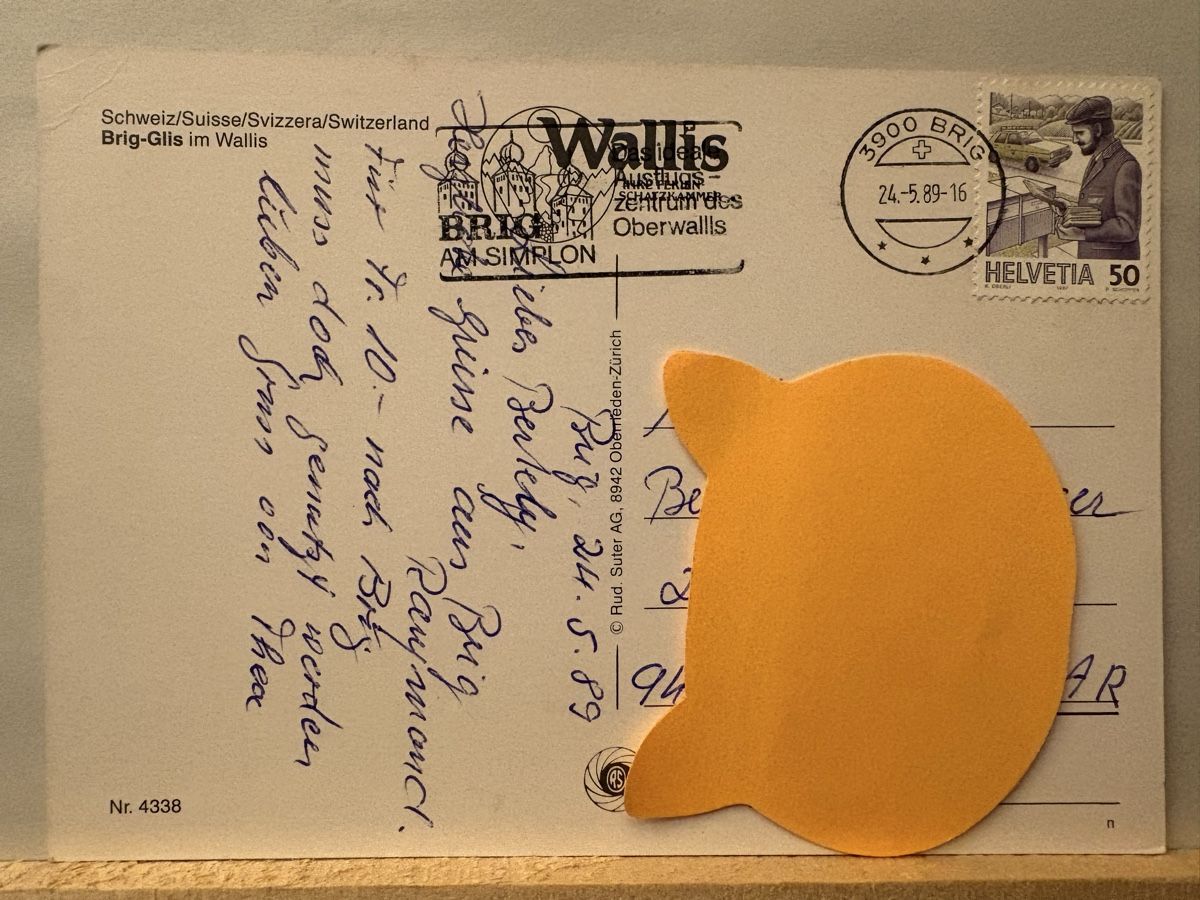 Schweiz/Suisse/Svizzera/Switzerland
Brig-Glis im Wallis
Wallis
IHRE FERIEN-
SCHATZKAMMER
Das ideale
Ausflugs-
zentrum des
Oberwallis
BRIG
AM SIMPLON
3900 BRIG
24.-5.89-16
HELVETIA 50
K. OBERLI 1987 P. SCHOPFER
Brig, 24.5.89
Lieber Bertely,
Herzliche Grüsse aus Brig
Raymond.
Für Fr. 10.- nach Brig
muss doch genutzt werden
lieben Gruss von Thea
© Rud. Suter AG, 8942 Oberrieden-Zürich
Be
er
AR
RS
Nr. 4338
n